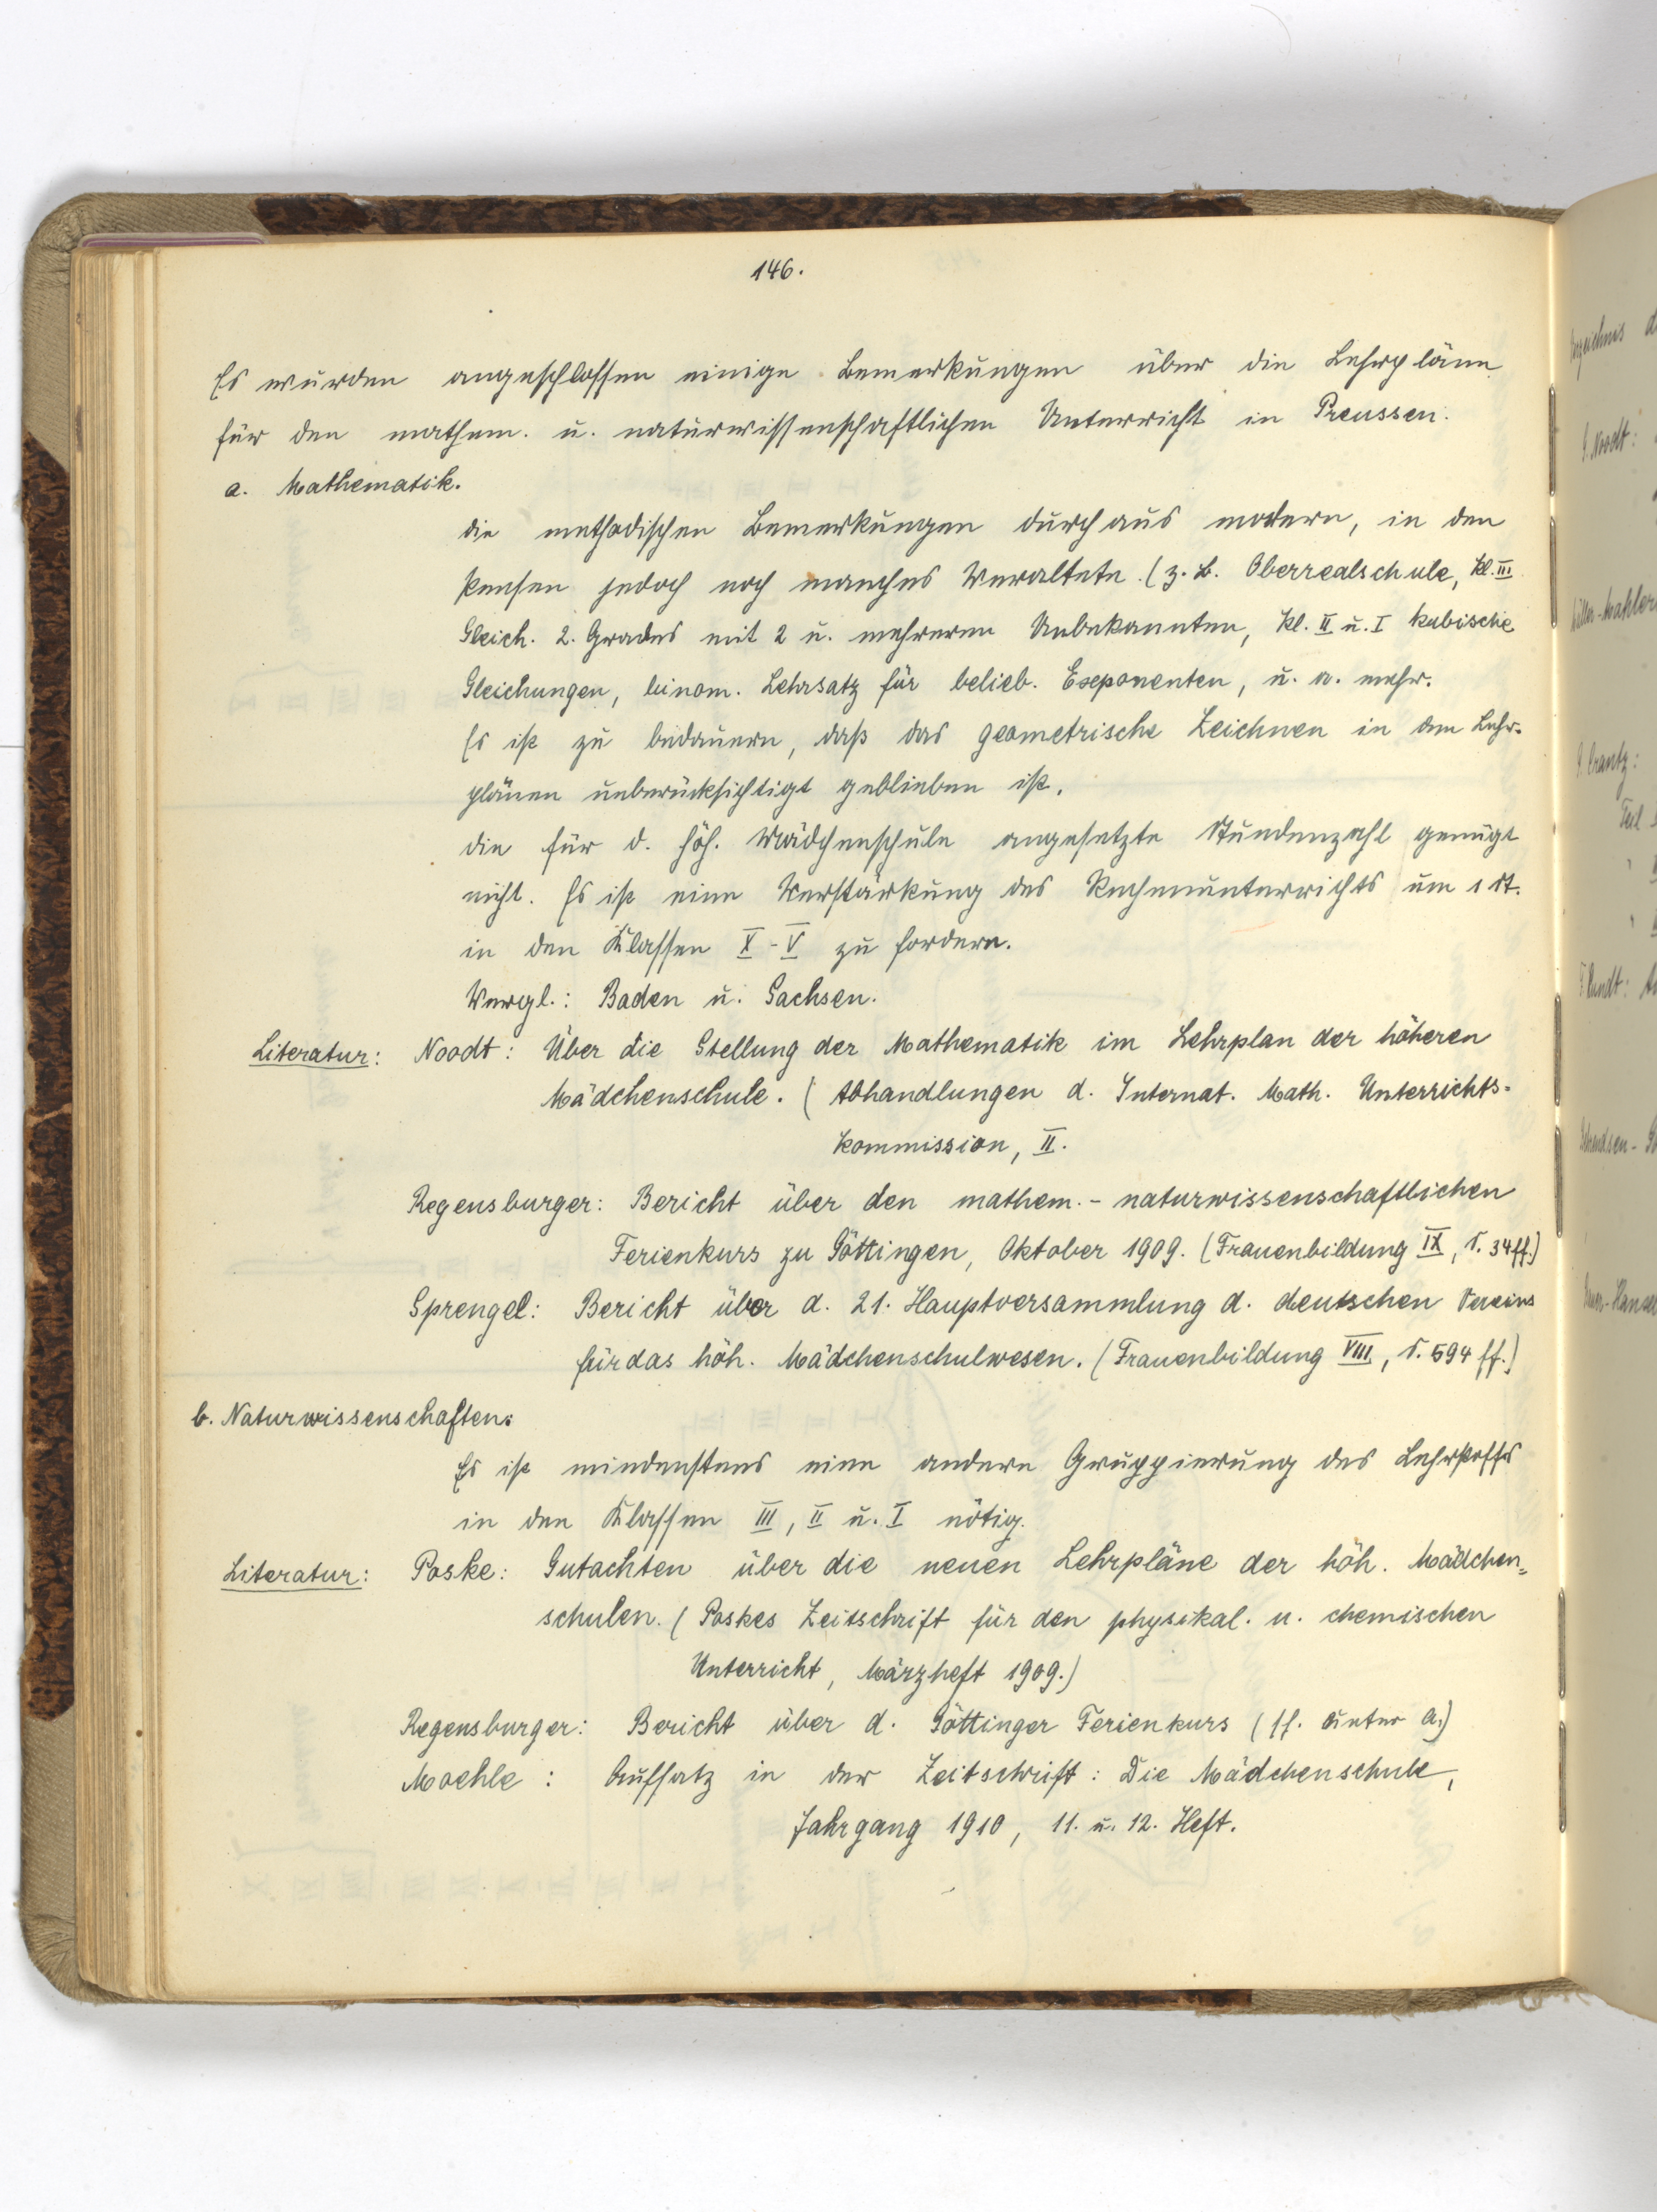 146.
Es wurden angeschlossen einige Bemerkungen über die Lehrpläne
für den mathem. u. naturwissenschaftlichen Unterricht in Preussen.
a. Mathematik.
die methodischen Bemerkungen durchaus modern, in den
Pensen jedoch noch manches Veraltete. (z. B. Oberrealschule, Kl. III
Gleich. 2. Grades mit 2 u. mehreren Unbekannten, Kl. II u. I kubische
Gleichungen, binom. Lehrsatz für belieb. Exponenten, u. a. mehr.
Es ist zu bedauern, daß das geometrische Zeichnen in den Lehr-
plänen unberücksichtigt geblieben ist.
die für d. höh. Mädchenschule angesetzte Stundenzahl genügt
nicht. Es ist eine Verstärkung des Rechenunterrichts um 1 St.
in den Klassen X - V zu fordern.
Vergl.: Baden u. Sachsen.
Literatur: Noodt: Über die Stellung der Mathematik im Lehrplan der höheren
Mädchenschule. (Abhandlungen d. Internat. Math. Unterrichts-
kommission, II.
Regensburger: Bericht über den mathem.- naturwissenschaftlichen
Ferienkurs zu Göttingen, Oktober 1909. (Frauenbildung IX, S. 34 ff.)
Sprengel: Bericht über d. 21. Hauptversammlung d. deutschen Vereins
für das höh. Mädchenschulwesen. (Frauenbildung VIII, S. 594 ff.)
b. Naturwissenschaften:
Es ist mindestens eine andere Gruppierung des Lehrstoffs
in den Klassen III, II u. I nötig.
Literatur: Poske: Gutachten über die neuen Lehrpläne der höh. Mädchen-
schulen. (Poskes Zeitschrift für den physikal. u. chemischen
Unterricht, Märzheft 1909.)
Regensburger: Bericht über d. Göttinger Ferienkurs (ff. unter a.)
Moehle: Aufsatz in der Zeitschrift: Die Mädchenschule,
Jahrgang 1910, 11. u. 12. Heft.